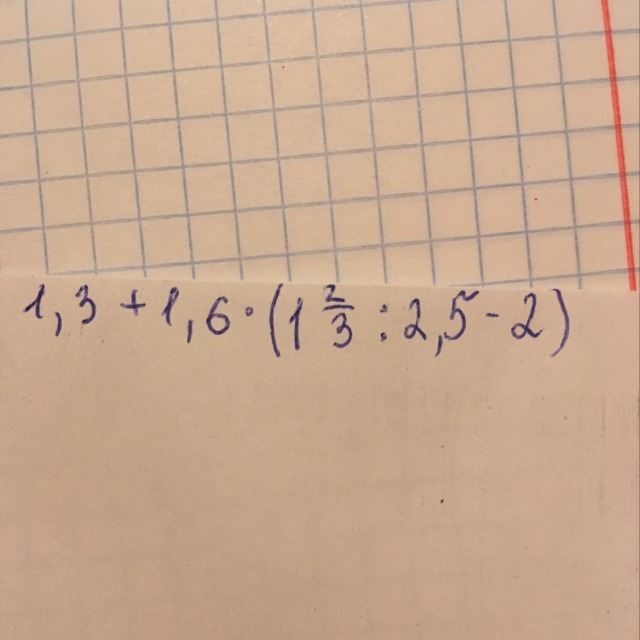 1,3 + 1,6 · (1 2/3 : 2,5 - 2)